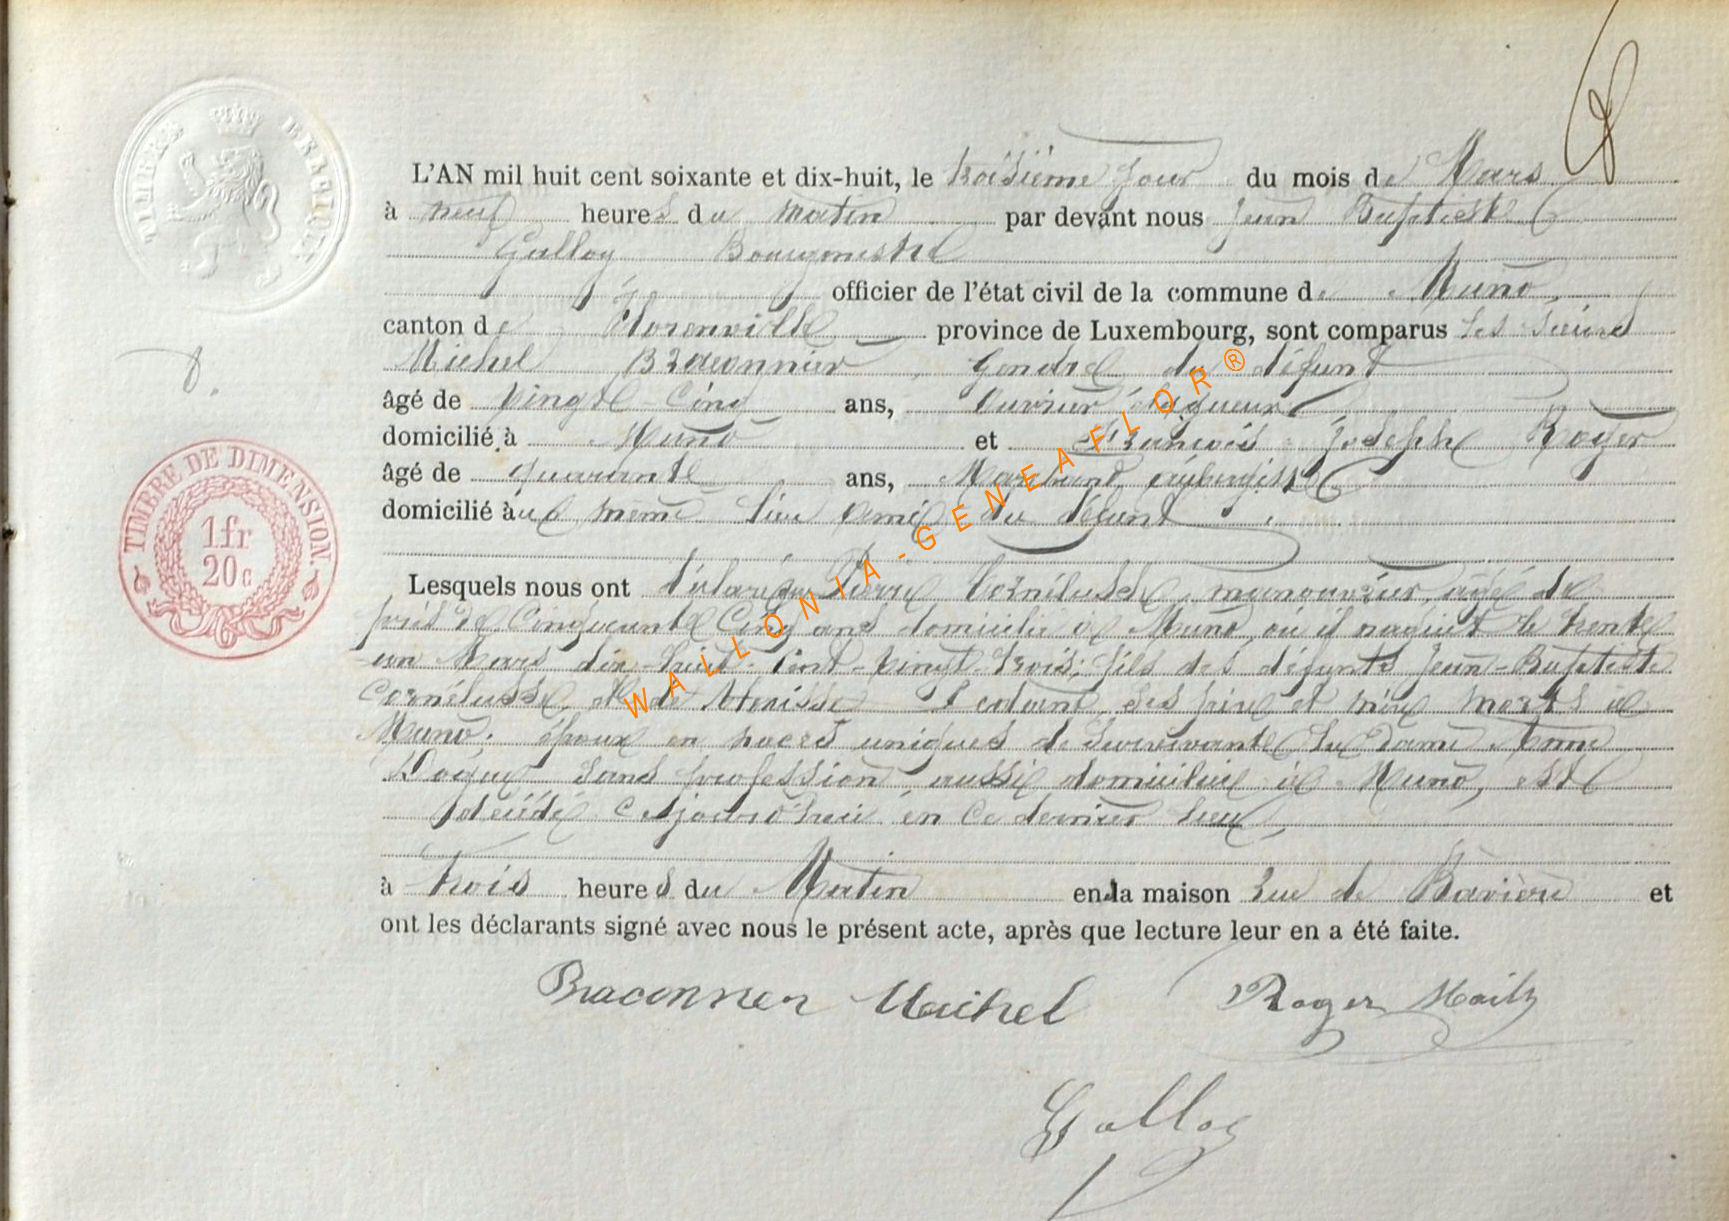 TIMBRE BELGIQUE
8.
TIMBRE DE DIMENSION.
1fr
20c
L'AN mil huit cent soixante et dix-huit, le troisième jour du mois de Mars
à neuf heures du matin par devant nous Jean Baptiste
Galloy Bourgmestre
officier de l'état civil de la commune de Muno,
canton de Florenville province de Luxembourg, sont comparus les sieurs
Michel Braconnier, Gendre du défunt
âgé de vingt-cinq ans, ouvrier
domicilié à Muno et François Joseph Roger
âgé de quarante ans, Marchand aubergiste
domicilié au même lieu ami du défunt.
Lesquels nous ont déclaré que Pierre Cornélusse, manouvrier, âgé de
près de Cinquante Cinq ans domicilié à Muno, où il naquit le trente
un Mars dix-huit-cent-vingt-trois; fils des défunts Jean-Baptiste
Cornélusse, et de ses père et mère morts à
Muno; époux en noces uniques de survivante la Dame Anne
sans profession, aussi domiciliée à Muno, est
décédé aujourd'hui en ce dernier lieu,
à trois heures du Matin en la maison rue de Bavière et
ont les déclarants signé avec nous le présent acte, après que lecture leur en a été faite.
Braconner Michel Roger
Galloy
WALLONIA-GENEAFLOR®